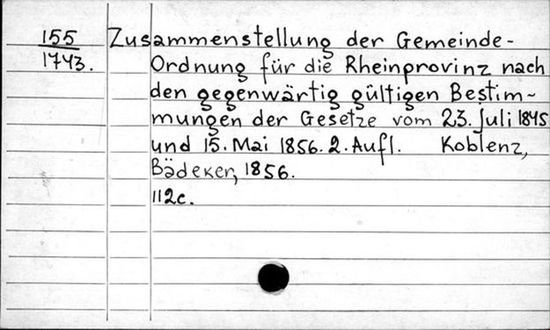 155 Zusammenstellung der Gemeinde-
1743. Ordnung für die Rheinprovinz nach
den gegenwärtig gültigen Bestim-
mungen der Gesetze vom 23. Juli 1845
und 15. Mai 1856. 2. Aufl. Koblenz,
Bädeker, 1856.
112c.